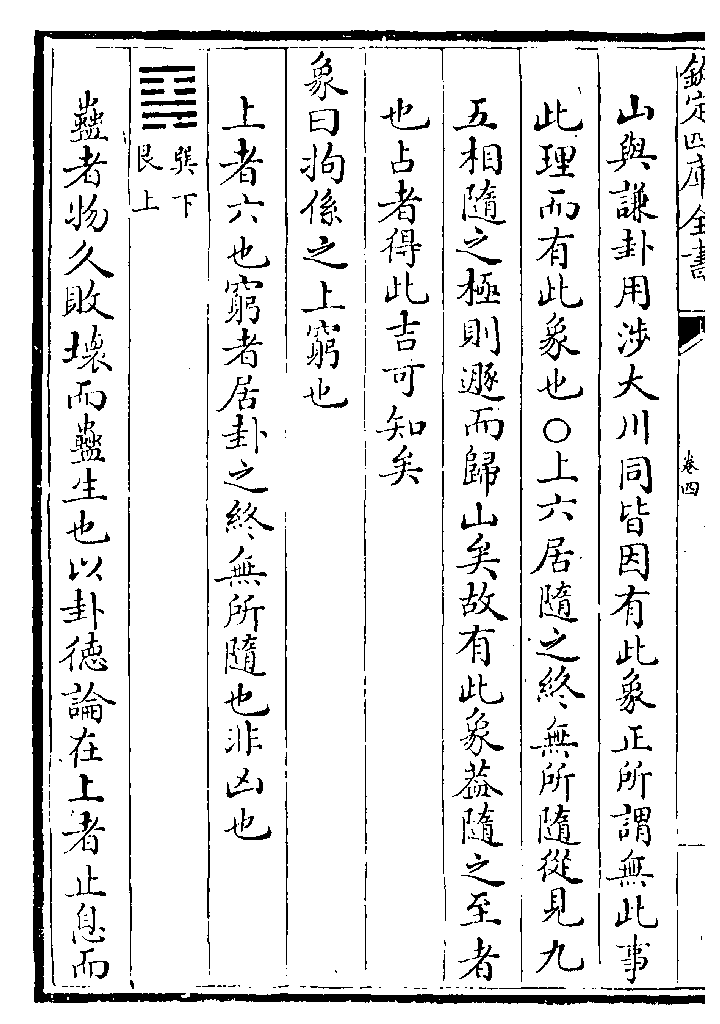 欽定四庫全書
卷四
山與謙卦用涉大川同皆因有此象正所謂無此事
此理而有此象也〇上六居隨之終無所隨從見九
五相隨之極則遯而歸山矣故有此象葢隨之至者
也占者得此吉可知矣
象曰拘係之上窮也
上者六也窮者居卦之終無所隨也非凶也
巽下
艮上
蠱者物久敗壞而蠱生也以卦德論在上者止息而